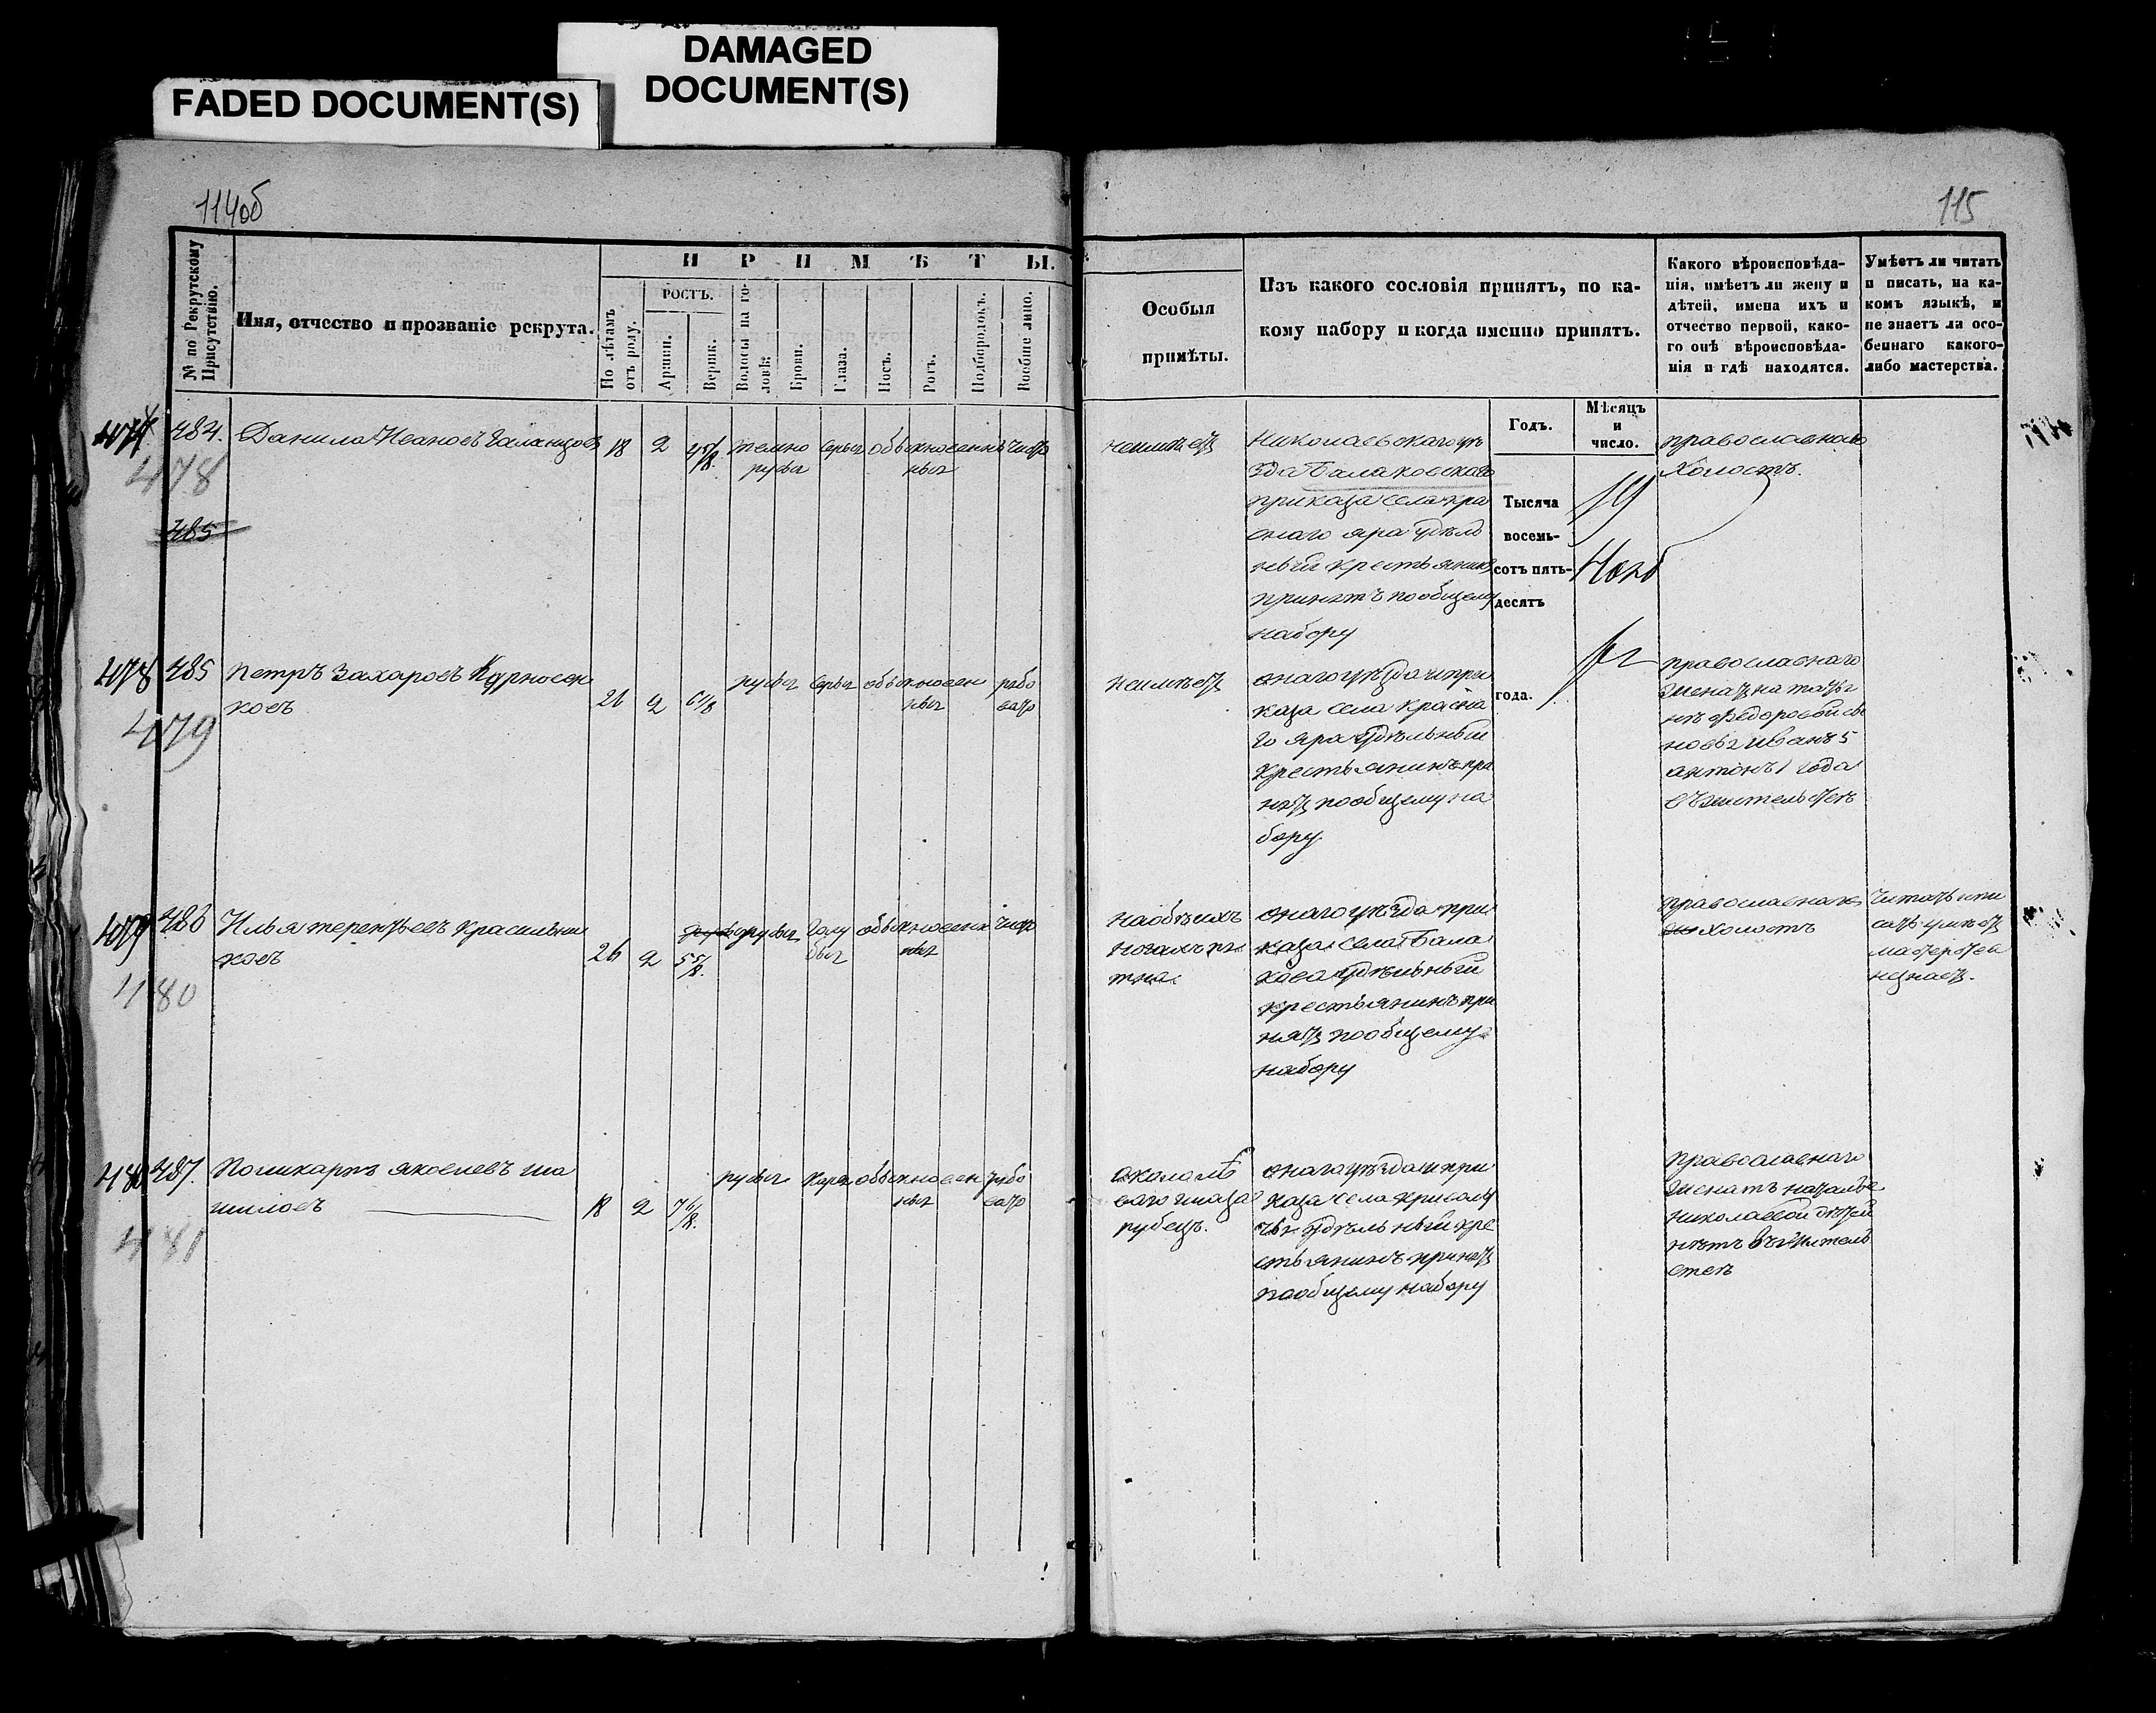 DAMAGED
DOCUMENT(S)
FADED DOCUMENT(S)
114об
№ по Рекрутскому
Присутствію.
Имя, отчество и прозваніе рекрута.
П Р И М Ѣ Т Ы.
По лѣтамъ
отъ роду.
РОСТЪ.
Аршин.
Вершк.
Волосы на го-
ловѣ.
Брови.
Глаза.
Носъ.
Ротъ.
Подбородокъ.
Вообще лицо.
474 484. Данило Ивановъ Галанцовъ 18 2 4 5/8. темно серые обыкновенн чисто
русые ные
478
485
478 485 Петръ Захаровъ Курносен
ковъ 26 2 6 1/8 русые серые обыкновен рябо
ные вато
479
479 486 Илья терентьевъ Красильни
ковъ 26 2 5 5/8. русые голу обыкновен чисто
бые ные
480
480 487. Поликарпъ яковлевъ ша
шиловъ 18 2 7 6/8. русые карие обыкновен рябо
ные вато
481
115
Особыя
примѣты.
Изъ какого сословія принятъ, по ка-
кому набору и когда именно принятъ.
Какого вѣроисповѣда-
нія, имѣетъ ли жену и
дѣтей, имена ихъ и
отчество первой, како-
го онѣ вѣроисповѣда-
нія и гдѣ находятся.
Умѣетъ ли читать
и писать, на ка-
комъ языкѣ, и
не знаетъ ли осо-
беннаго какого-
либо мастерства.
Годъ.
Мѣсяцъ
и
число.
Тысяча
восемь-
сотъ пять-
десятъ
года.
19
Нояб
неимѣетъ
Николаевскаго уѣ
зда Балаковскаго
приказа села кра
снаго яра удѣль
ный крестьянинъ
принятъ пообщему
набору
православнаго
холостъ.
неимѣетъ
онаго уѣзда и при
каза села красна
го яра удѣльный
крестьянинъ при
нятъ пообщему на
бору
православнаго
женатъ на татья
нѣ Федоровой сы
новья иванъ 5
антонъ 1 года
въ жительствѣ
наобѣихъ
ногахъ пя
тна.
онаго уѣзда при
каза села Бала
кова удѣльный
крестьянинъ при
нятъ пообщему
набору
православнаго
холостъ
читать и пи
сать умѣетъ
мастерства
незнаетъ.
около лѣ
ваго глаза
рубецъ.
онаго уѣзда и при
каза села криволу
чья удѣльный кре
стьянинъ принятъ
пообщему набору
православнаго
женатъ
николаевой дѣтей
нѣтъ въ житель
ствѣ